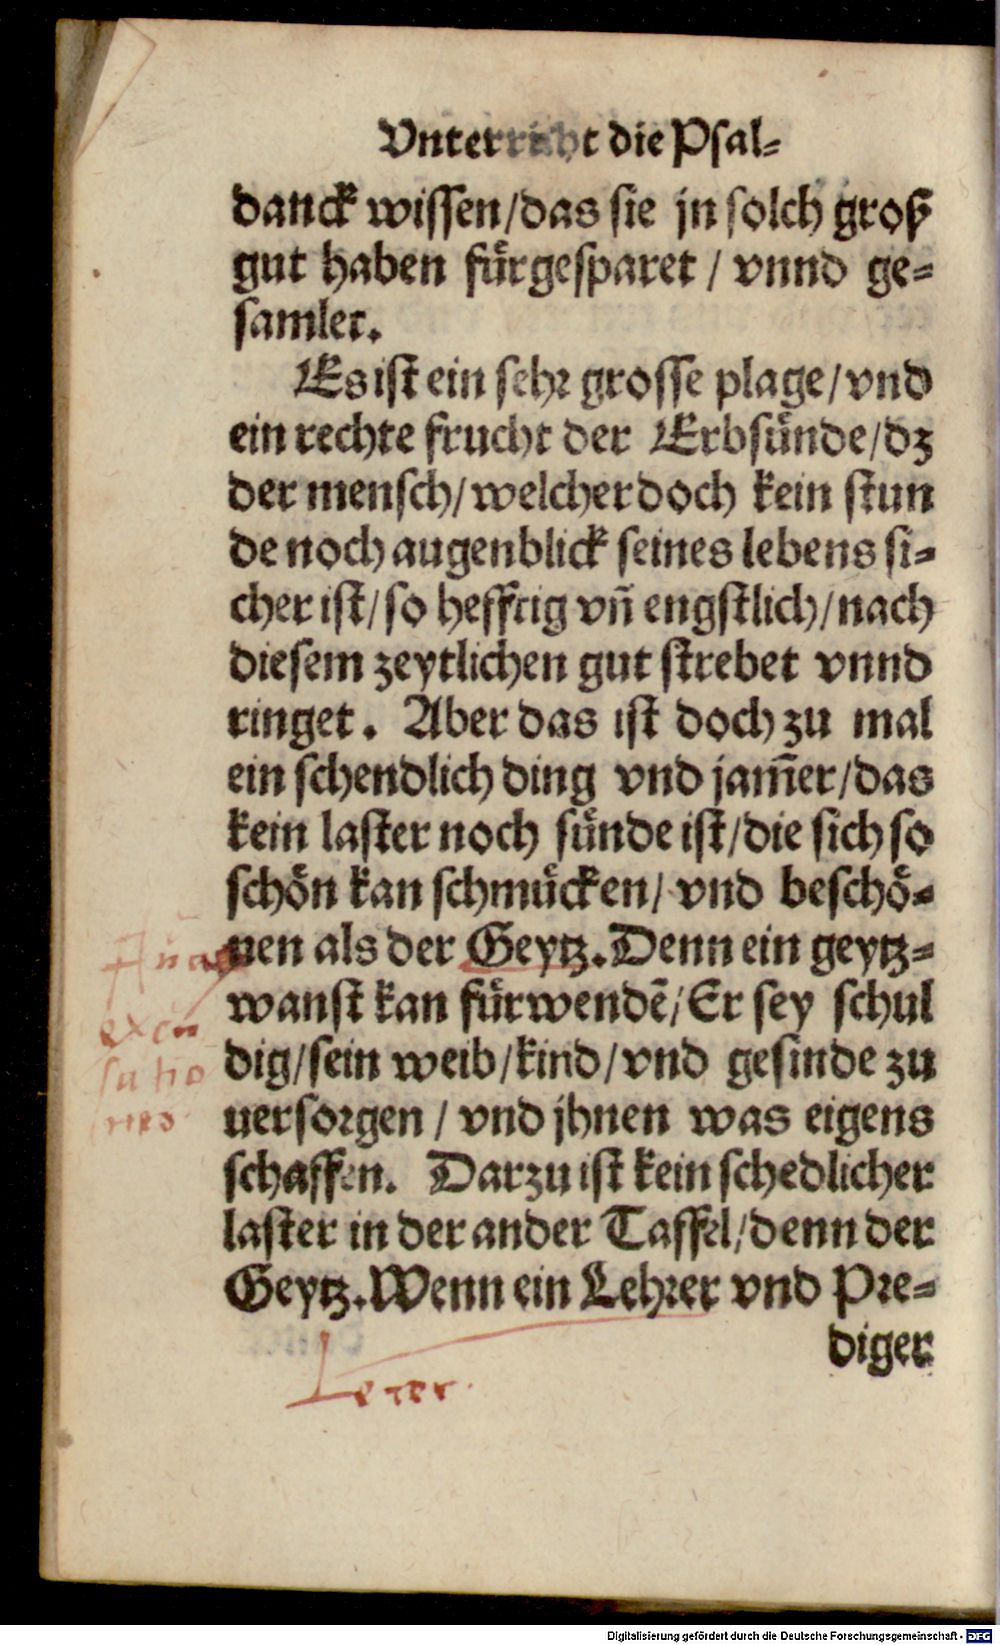 Vnterricht die Psal⸗
danck wissen/das sie jn solch groß
gut haben fürgesparet / vnnd ge⸗
samlet.
Es ist ein sehr grosse plage/vnd
ein rechte frucht der Erbsünde/dz
der mensch/welcher doch kein stun
de noch augenblick seines lebens si⸗
cher ist/so hefftig vñ engstlich/nach
diesem zeytlichen gut strebet vnnd
ringet. Aber das ist doch zu mal
ein schendlich ding vnd jam̃er/das
kein laster noch sünde ist/die sich so
schön kan schmücken/ vnd beschö⸗
nen als der Geytz. Denn ein geytz⸗
wanst kan fürwendẽ/Er sey schul
dig/sein weib/kind/vnd gesinde zu
uersorgen / vnd jhnen was eigens
schaffen. Darzu ist kein schedlicher
laster in der ander Taffel/denn der
Geytz. Wenn ein Lehrer vnd Pre⸗
diger
excu
satio
nes
Lerer.
Digitalisierung gefördert durch die Deutsche Forschungsgemeinschaft - DFG